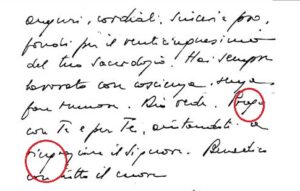 auguri, cordiali, sinceri e pro,
fondi per il venticinquesimo
del tuo Sacerdozio. Hai sempre
lavorato con coscienza, senza
far rumore. Dio vede. Prego
con Te e per Te, aiutandoti a
ringraziare il Signore. Benedico
con tutto il cuore